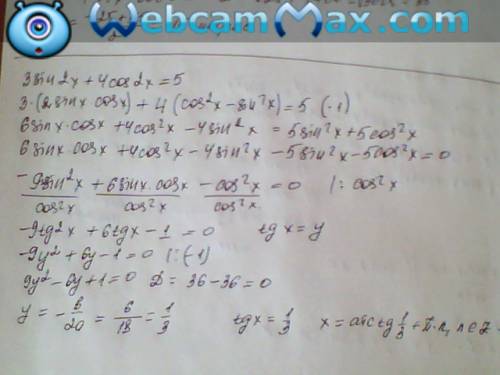 WebcamMax.com
3sin2x+4cos2x=5
3·(2sinx cosx)+4(cos²x-sin²x)=5·(-1)
6sinx·cosx+4cos²x-4sin²x=5sin²x+5cos²x
6sinx cosx+4cos²x-4sin²x-5sin²x-5cos²x=0
-9sin²x/cos²x + 6sinx·cosx/cos²x - cos²x/cos²x = 0 |: cos²x
-9tg²x+6tgx-1=0 tgx=y
-9y²+6y-1=0 |:(-1)
9y²-6y+1=0 D=36-36=0
y=-b/2a=6/18=1/3 tgx=1/3 x=arctg1/3+π·n, n∈z